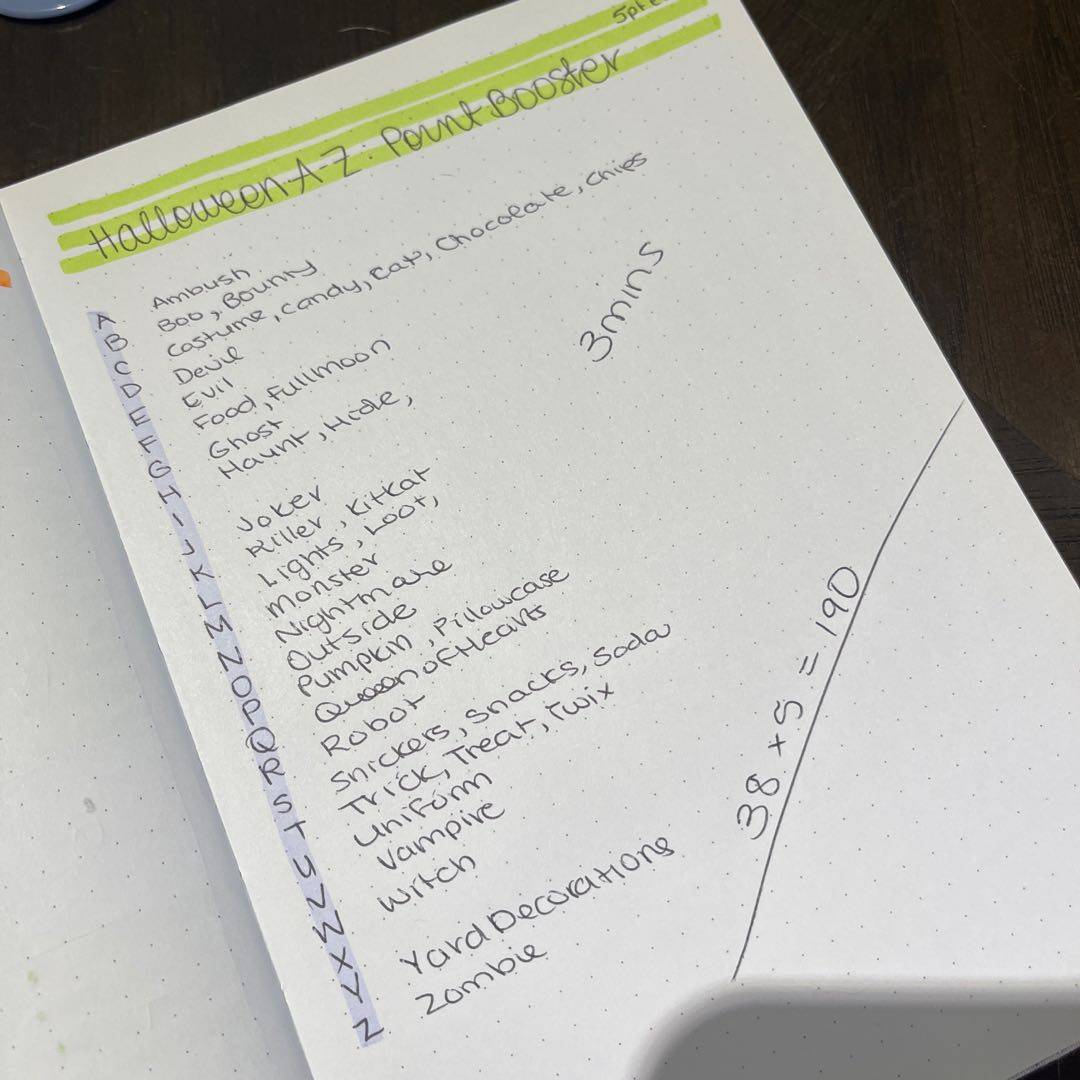 5pt
Halloween A-Z: Point Booster
A Ambush
B Boo, Bounty
C Costume, Candy, Cat, Chocolate, Chips
D Devil
E Evil
F Food, Fullmoon
G Ghost
H Haunt, Hide,
I
J Joker
K Killer, KitKat
L Lights, Loot,
M Monster
N Nightmare
O Outside
P Pumpkin, Pillowcase
Q Queen of Hearts
R Robot
S Snickers, Snacks, Soda
T Trick, Treat, Twix
U Uniform
V Vampire
W Witch
X
Y Yard Decorations
Z Zombie
3mins
38 + 5 = 190